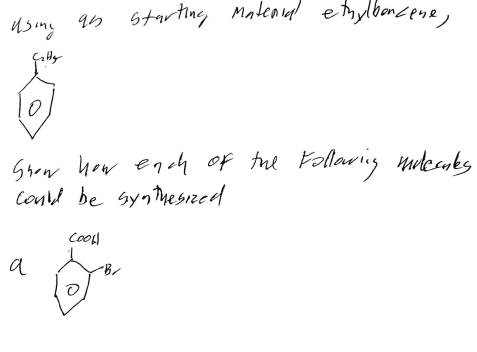 Using as starting Material ethylbenzene,
C2H5
Show how each of the Following molecules
could be synthesized
COOH
a
Br